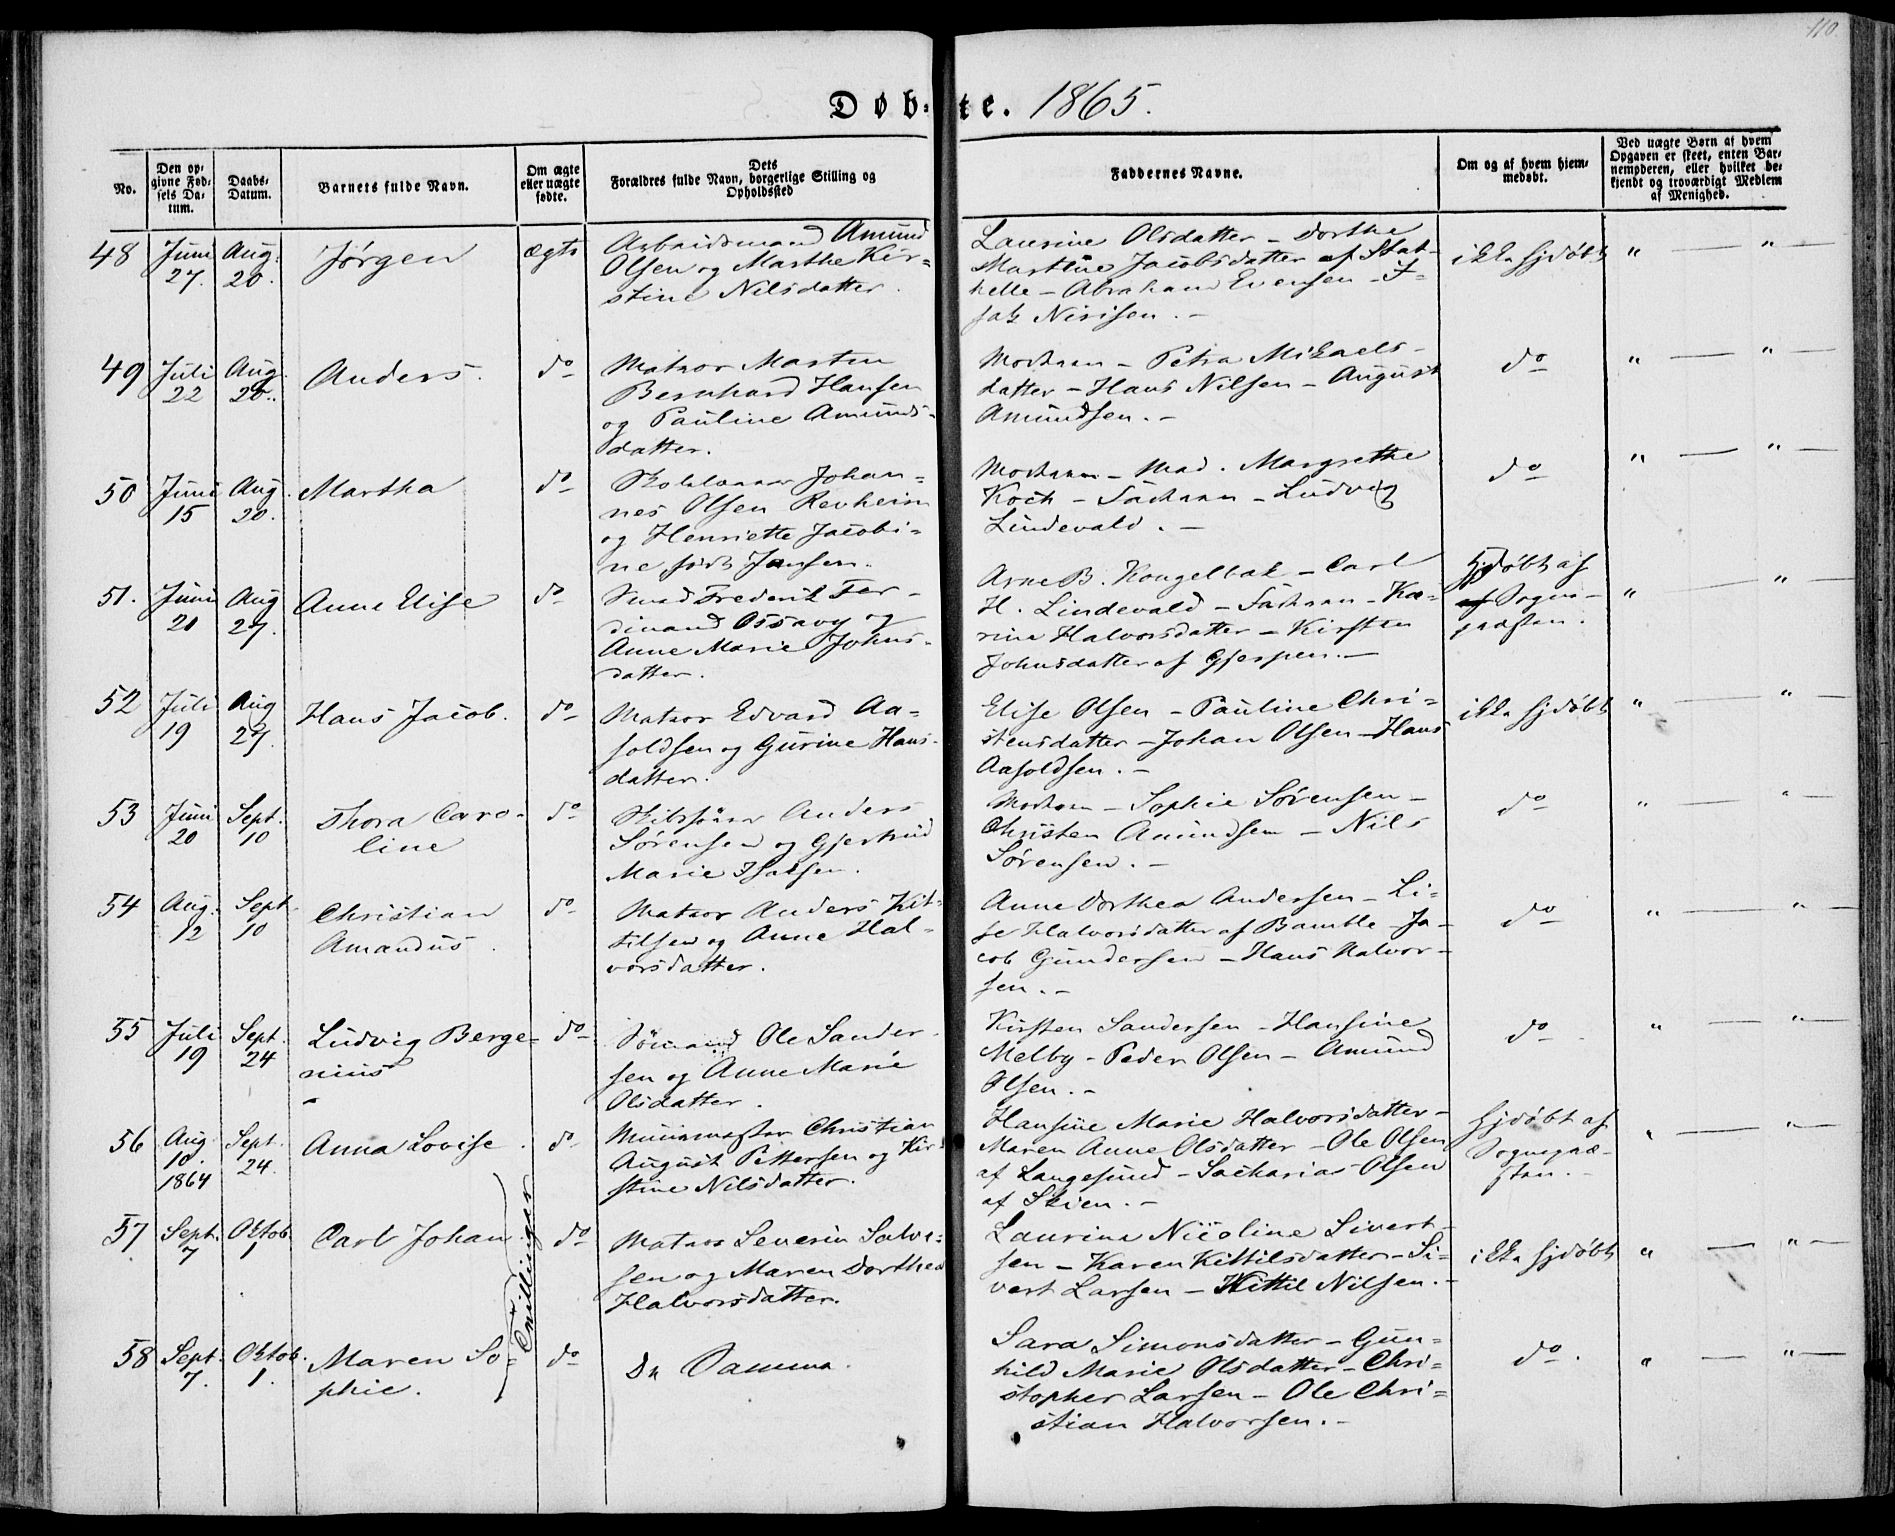 110.
Døbte. 1865.
No.
Den opgivne Fødsels Datum.
Daabs-Datum.
Barnets fulde Navn.
Om ægte eller uægte fødte.
Dets Forældres fulde Navn, borgerlige Stilling og Opholdssted
Faddernes Navne.
Om og af hvem hjemmedøbt.
Ved uægte Børn af hvem Opgaven er skeet, enten Barnempderen, eller hvilket bekjendt og troværdigt Medlem af Menighed.
48 Juni 27. Aug. 20. Jørgen ægte
Arbeidsmand Amund
Olsen og Marthe Kir=
stine Nilsdatter.
Laurine Olsdatter - Dorthe
Martine Jacobsdatter af Stat-
helle - Abraham Evensen - I=
sak Nirisen. -
ikke hjdøbt " — " —
49 Juli 22 Aug. 20. Anders. do
Matros Marten
Bernhard Hansen
og Pauline Amunds=
datter.
Moderen - Petra Mikaels-
datter - Hans Nilsen - August
Amundsen. -
do " — " —
50 Juni 15 Aug. 20. Martha do
Skolelærer Johan=
nes Olsen Revheim
og Henriette Jacobi=
ne født Jansen.
Moderen - Mad. Margrethe
Koch - Faderen - Ludvig
Lindevald. -
do " — " —
51. Juni 21 Aug 27. Anne Elise do
Smed Frederik Fer-
dinand Ossavy og
Anne Marie Johns-
datter.
Arne B. Kongelbak - Carl
H. Lindevald - Faderen - Ka=
rine Halvorsdatter - Kirsten
Johnsdatter af Gjerpen. -
Hjdøbt af
af Sogne-
præsten.
" — " —
52 Juli 19 Aug 27. Hans Jacob. do
Matros Edvard Aa-
soldsen og Gurine Hans-
datter.
Elise Olsen - Pauline Chri=
stensdatter - Johan Olsen - Hans
Aasoldsen. -
ikke hjdøbt " — " —
53 Juni 20 Sept. 10 Thora Caro-
line do
Skibsfører Anders
Sørensen og Gjertrud
Marie Isaksen.
Moderen - Sophie Sørensen -
Christen Amundsen - Nils
Sørensen. -
do " — " —
54 Aug. 12 Sept. 10 Christian
Amandus. do
Matros Anders Kit-
tilsen og Anne Hal-
vorsdatter.
Anne Dorthea Andersen - Li-
se Halvorsdatter af Bamble - Ja-
cob Gundersen - Hans Halvor-
sen. -
do " — " —
55 Juli 19 Sept. 24 Ludvig Berge=
nius do
Sømand Ole Sander-
sen og Anne Marie
Olsdatter.
Kirsten Sandersen - Hansine
Melby - Peder Olsen - Amund
Olsen. -
do " — " —
56 Aug. 10. 1864 Sept. 24. Anna Lovise. do
Muurmester Christian
August Pettersen og Kir=
stine Nilsdatter.
Hansine Marie Halvorsdatter -
Maren Anne Olsdatter - Ole Olsen
af Langesund - Sacharias Olsen
af Skien. -
Hjdøbt af
Sognepræ-
sten. -
" — " —
57 Sept. 7 Oktob. 1 Carl Johan do
Tvillinger
Matros Severin Salve=
sen og Maren Dorthea
Halvorsdatter.
Laurine Nicoline Sivert-
sen - Karen Kittilsdatter - Si=
vert Larsen - Kittil Nilsen. -
ikke hjdøbt " — " —
58 Sept. 7. Oktob. 1. Maren So=
phie. do
De Samme.
Sara Simonsdatter - Gun=
hild Marie Olsdatter - Chri=
stopher Larsen - Ole Chri=
stian Halvorsen. -
do. " — " —